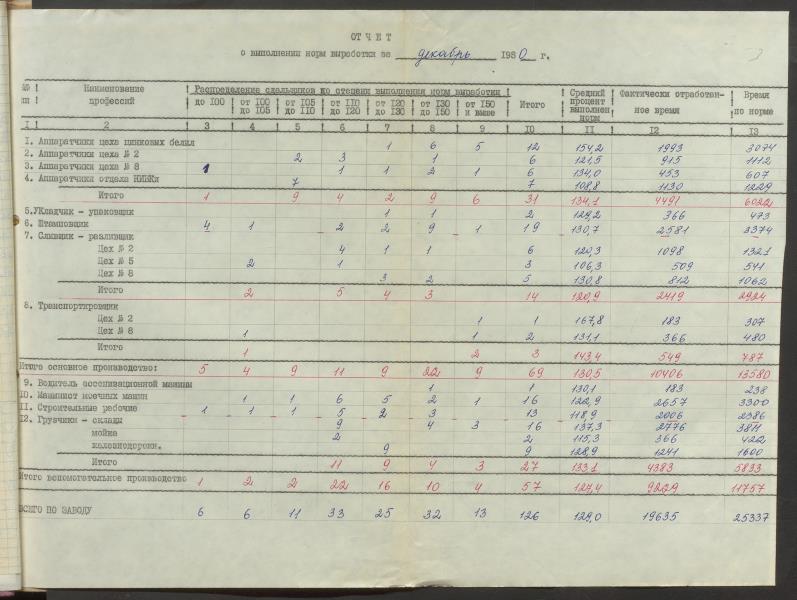 ОТЧЕТ
о выполнении норм выработки за декабрь 1980 г.
Наименование профессий Распределение сдельщиков по степени выполнения норм выработки Итого Средний процент выполнен норм Фактически отработанное время Время по норме
до 100 от 100 до 105 от 105 до 110 от 110 до 120 от 120 до 130 от 130 до 150 от 150 и выше
1 2 3 4 5 6 7 8 9 10 11 12 13
1. Аппаратчики цеха цинковых белил 1 6 5 12 154,2 1993 3074
2. Аппаратчики цеха № 2 2 3 1 6 121,5 915 1112
3. Аппаратчики цеха № 8 1 1 1 2 1 6 134,0 453 607
4. Аппаратчики отдела НИБКи 7 7 108,8 1130 1229
Итого 1 9 4 2 9 6 31 134,1 4491 6022
5. Укладчик - упаковщик 1 1 2 129,2 366 473
6. Штамповщик 4 1 2 2 9 1 19 130,7 2581 3374
7. Сливщик - разливщик
Цех № 2 4 1 1 6 120,3 1098 1321
Цех № 5 2 1 3 106,3 509 541
Цех № 8 3 2 5 130,8 812 1062
Итого 2 5 4 3 14 120,9 2419 2924
8. Транспортировщик
Цех № 2 1 1 167,8 183 307
Цех № 8 1 1 2 131,1 366 480
Итого 1 2 3 143,4 549 787
Итого основное производство: 5 4 9 11 9 22 9 69 130,5 10406 13580
9. Водитель ассенизационной машины 1 1 130,1 183 238
10. Машинист моечных машин 1 1 6 5 2 1 16 122,9 2657 3300
11. Строительные рабочие 1 1 1 5 2 3 13 118,9 2006 2386
12. Грузчики - склады 9 4 3 16 137,3 2776 3811
мойка 2 2 115,3 366 422
железнодорожн. 9 9 128,9 1241 1600
Итого 11 9 4 3 27 133,1 4383 5833
Итого вспомогательное производство 1 2 2 22 16 10 4 57 127,4 9229 11757
ВСЕГО ПО ЗАВОДУ 6 6 11 33 25 32 13 126 129,0 19635 25337